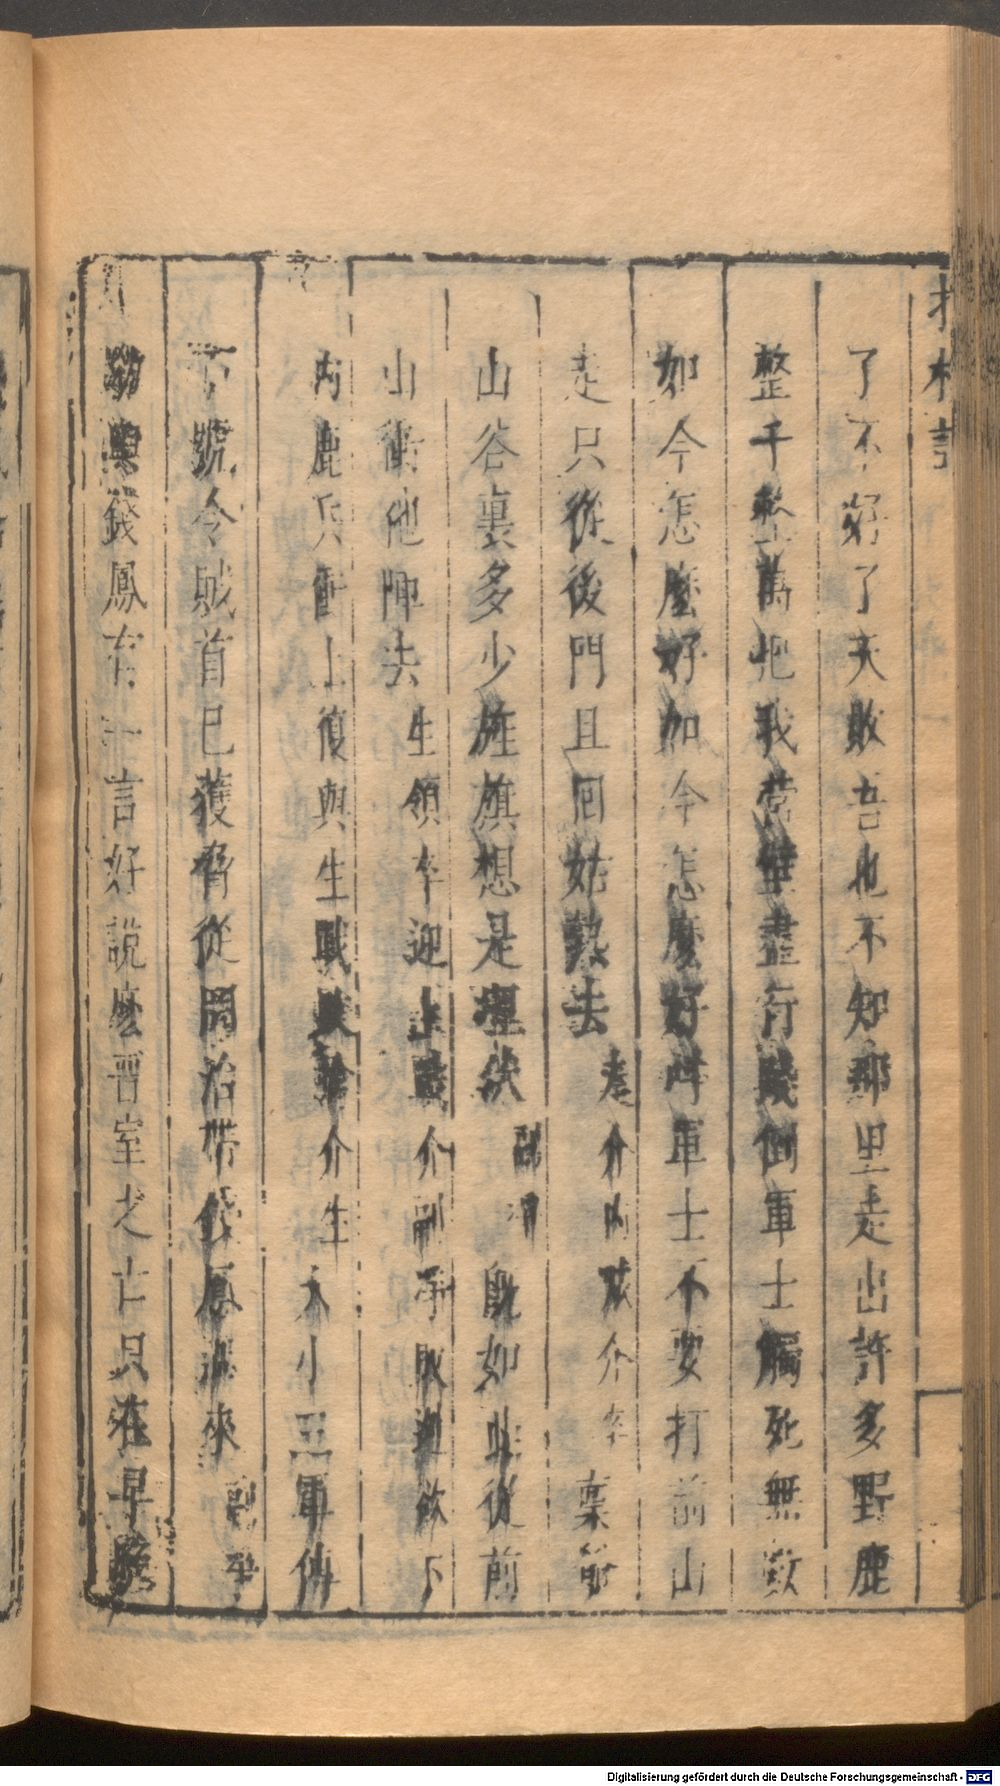 了不好了天敗吾也不知那里走出許多野鹿
整千整萬把我營壘盡行踐倒軍士觸死無數
如今怎麼好如今怎麼好軍士不要打前山
走只從後門且回姑孰去走介內喊介卒稟爺
山谷裏多少旌旗想是埋伏既如此從前
山衝他陣去生領卒迎上戰介副淨敗逃欲下
內鹿兵衝上復與生戰被擒介生大小三軍傳
下號令賊首已獲脅從罔治帶錢鳳過來
錢鳳有一言好說麼晋室之亡只在早晚
Digitalisierung gefördert durch die Deutsche Forschungsgemeinschaft - DFG